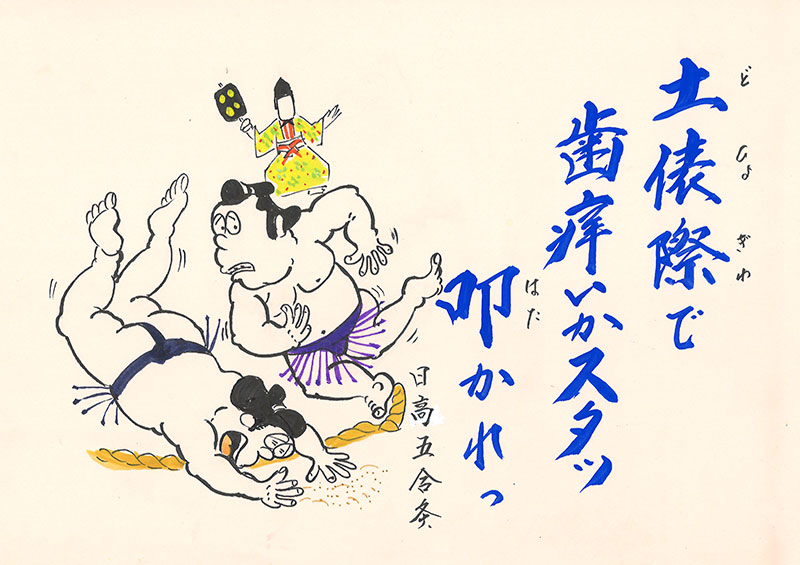 土俵際で
どひょぎわ
歯痒いかスタッ
叩かれっ
はた
日高五合灸